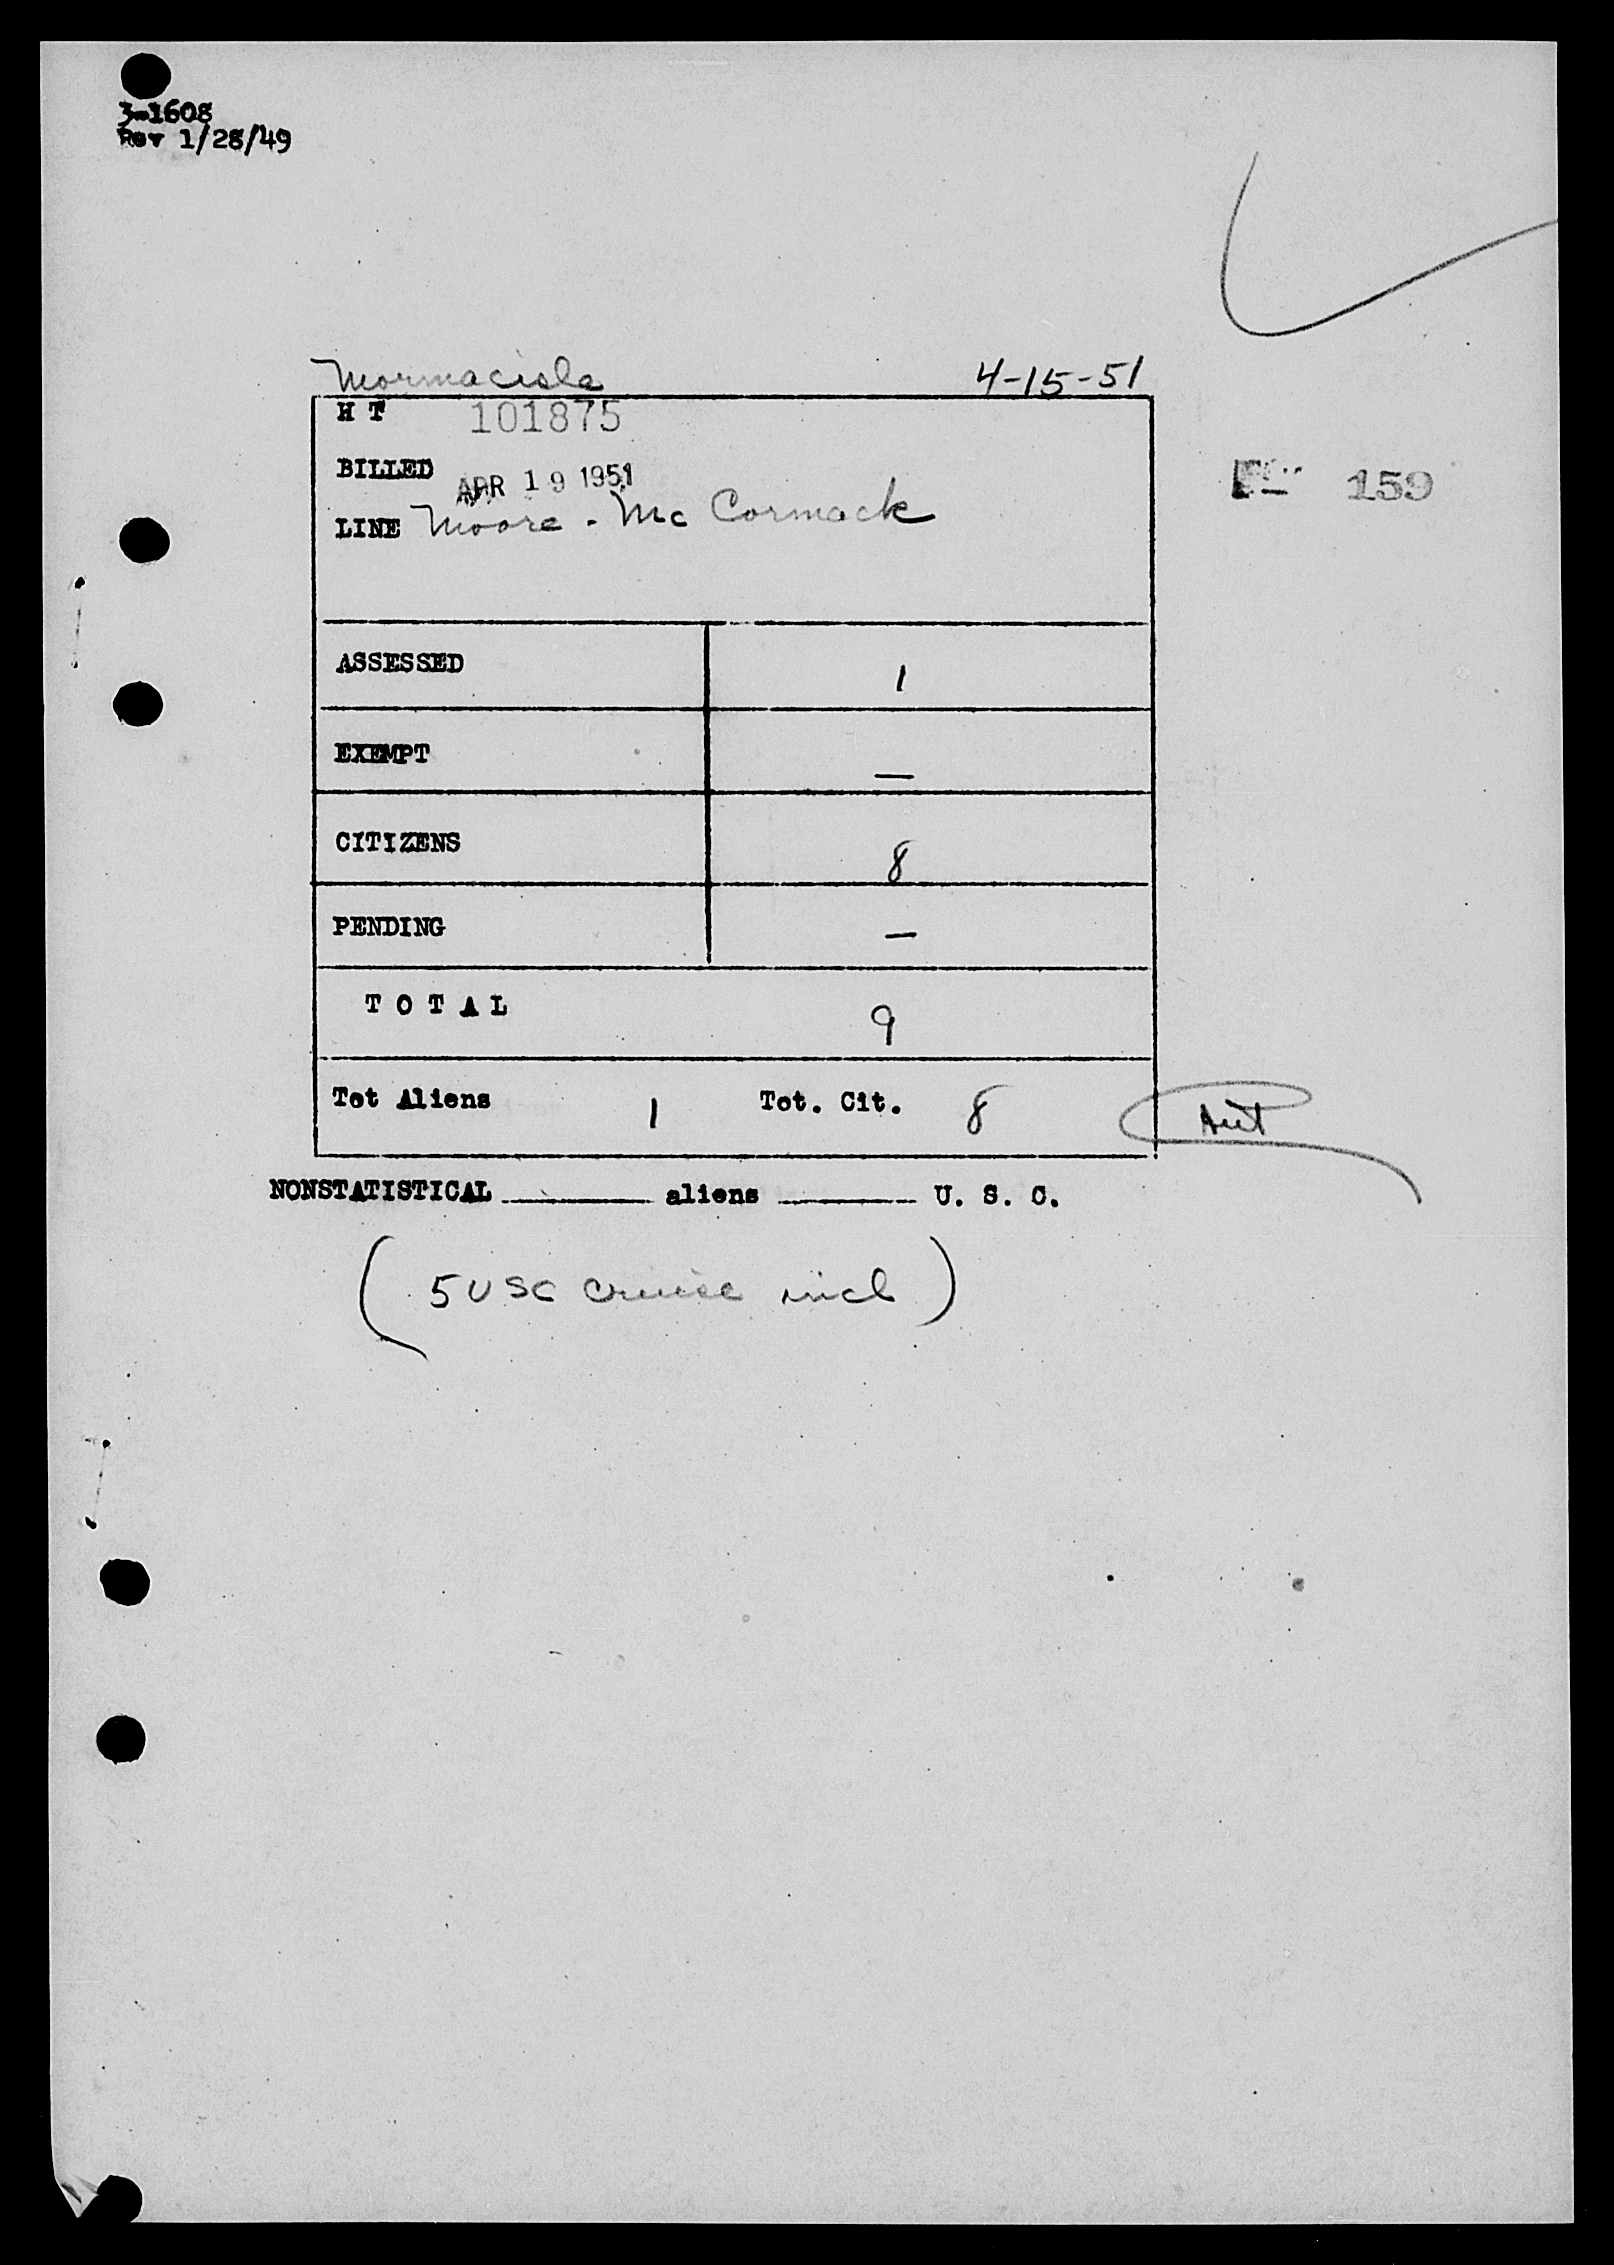 3-1608
Rev 1/28/49
Mormacisle 4-15-51
H T 101875
BILLED APR 19 1951
159
LINE Moore - Mc Cormack
ASSESSED 1
EXEMPT —
CITIZENS 8
PENDING —
T O T A L 9
Tot Aliens 1 Tot. Cit. 8
NONSTATISTICAL ________ aliens ________ U. S. C.
( 5 USC cruise incl )